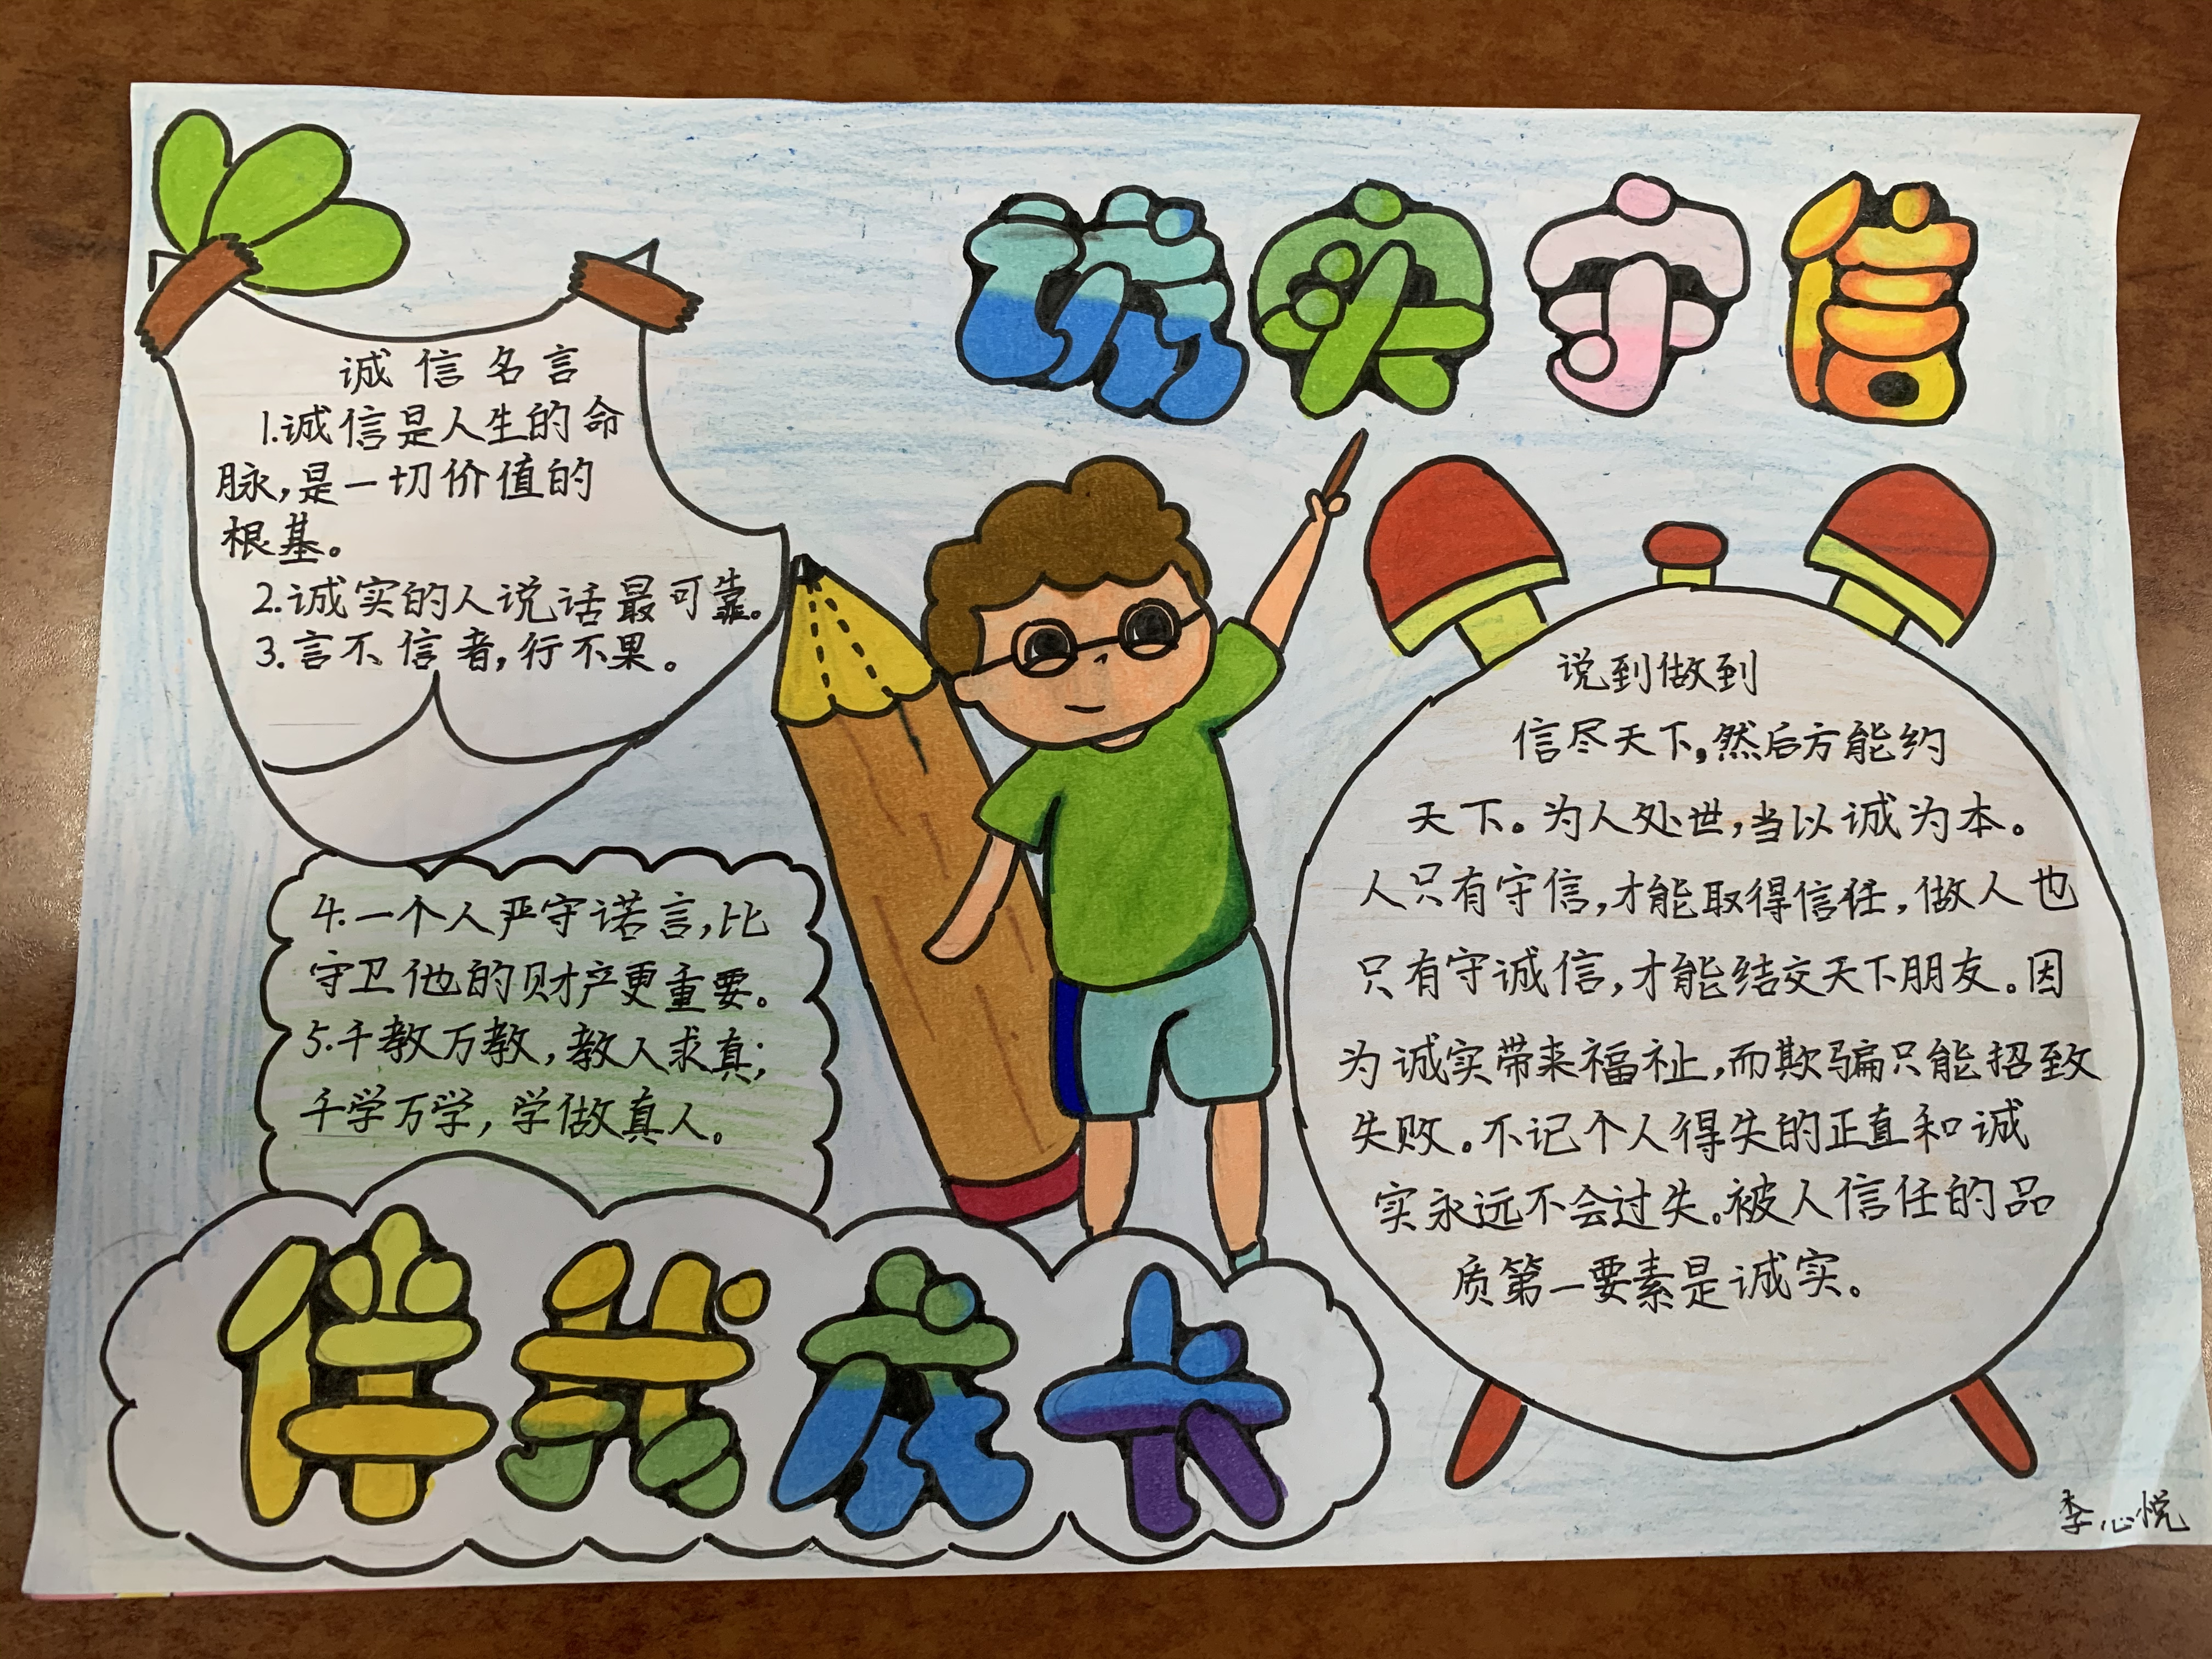 诚实守信
诚信名言
1.诚信是人生的命
脉,是一切价值的
根基。
2.诚实的人说话最可靠。
3.言不信者,行不果。
4.一个人严守诺言,比
守卫他的财产更重要。
5.千教万教,教人求真;
千学万学,学做真人。
说到做到
信尽天下,然后方能约
天下。为人处世,当以诚为本。
人只有守信,才能取得信任,做人也
只有守诚信,才能结交天下朋友。因
为诚实带来福祉,而欺骗只能招致
失败。不记个人得失的正直和诚
实永远不会过失。被人信任的品
质第一要素是诚实。
伴我成长
李心悦